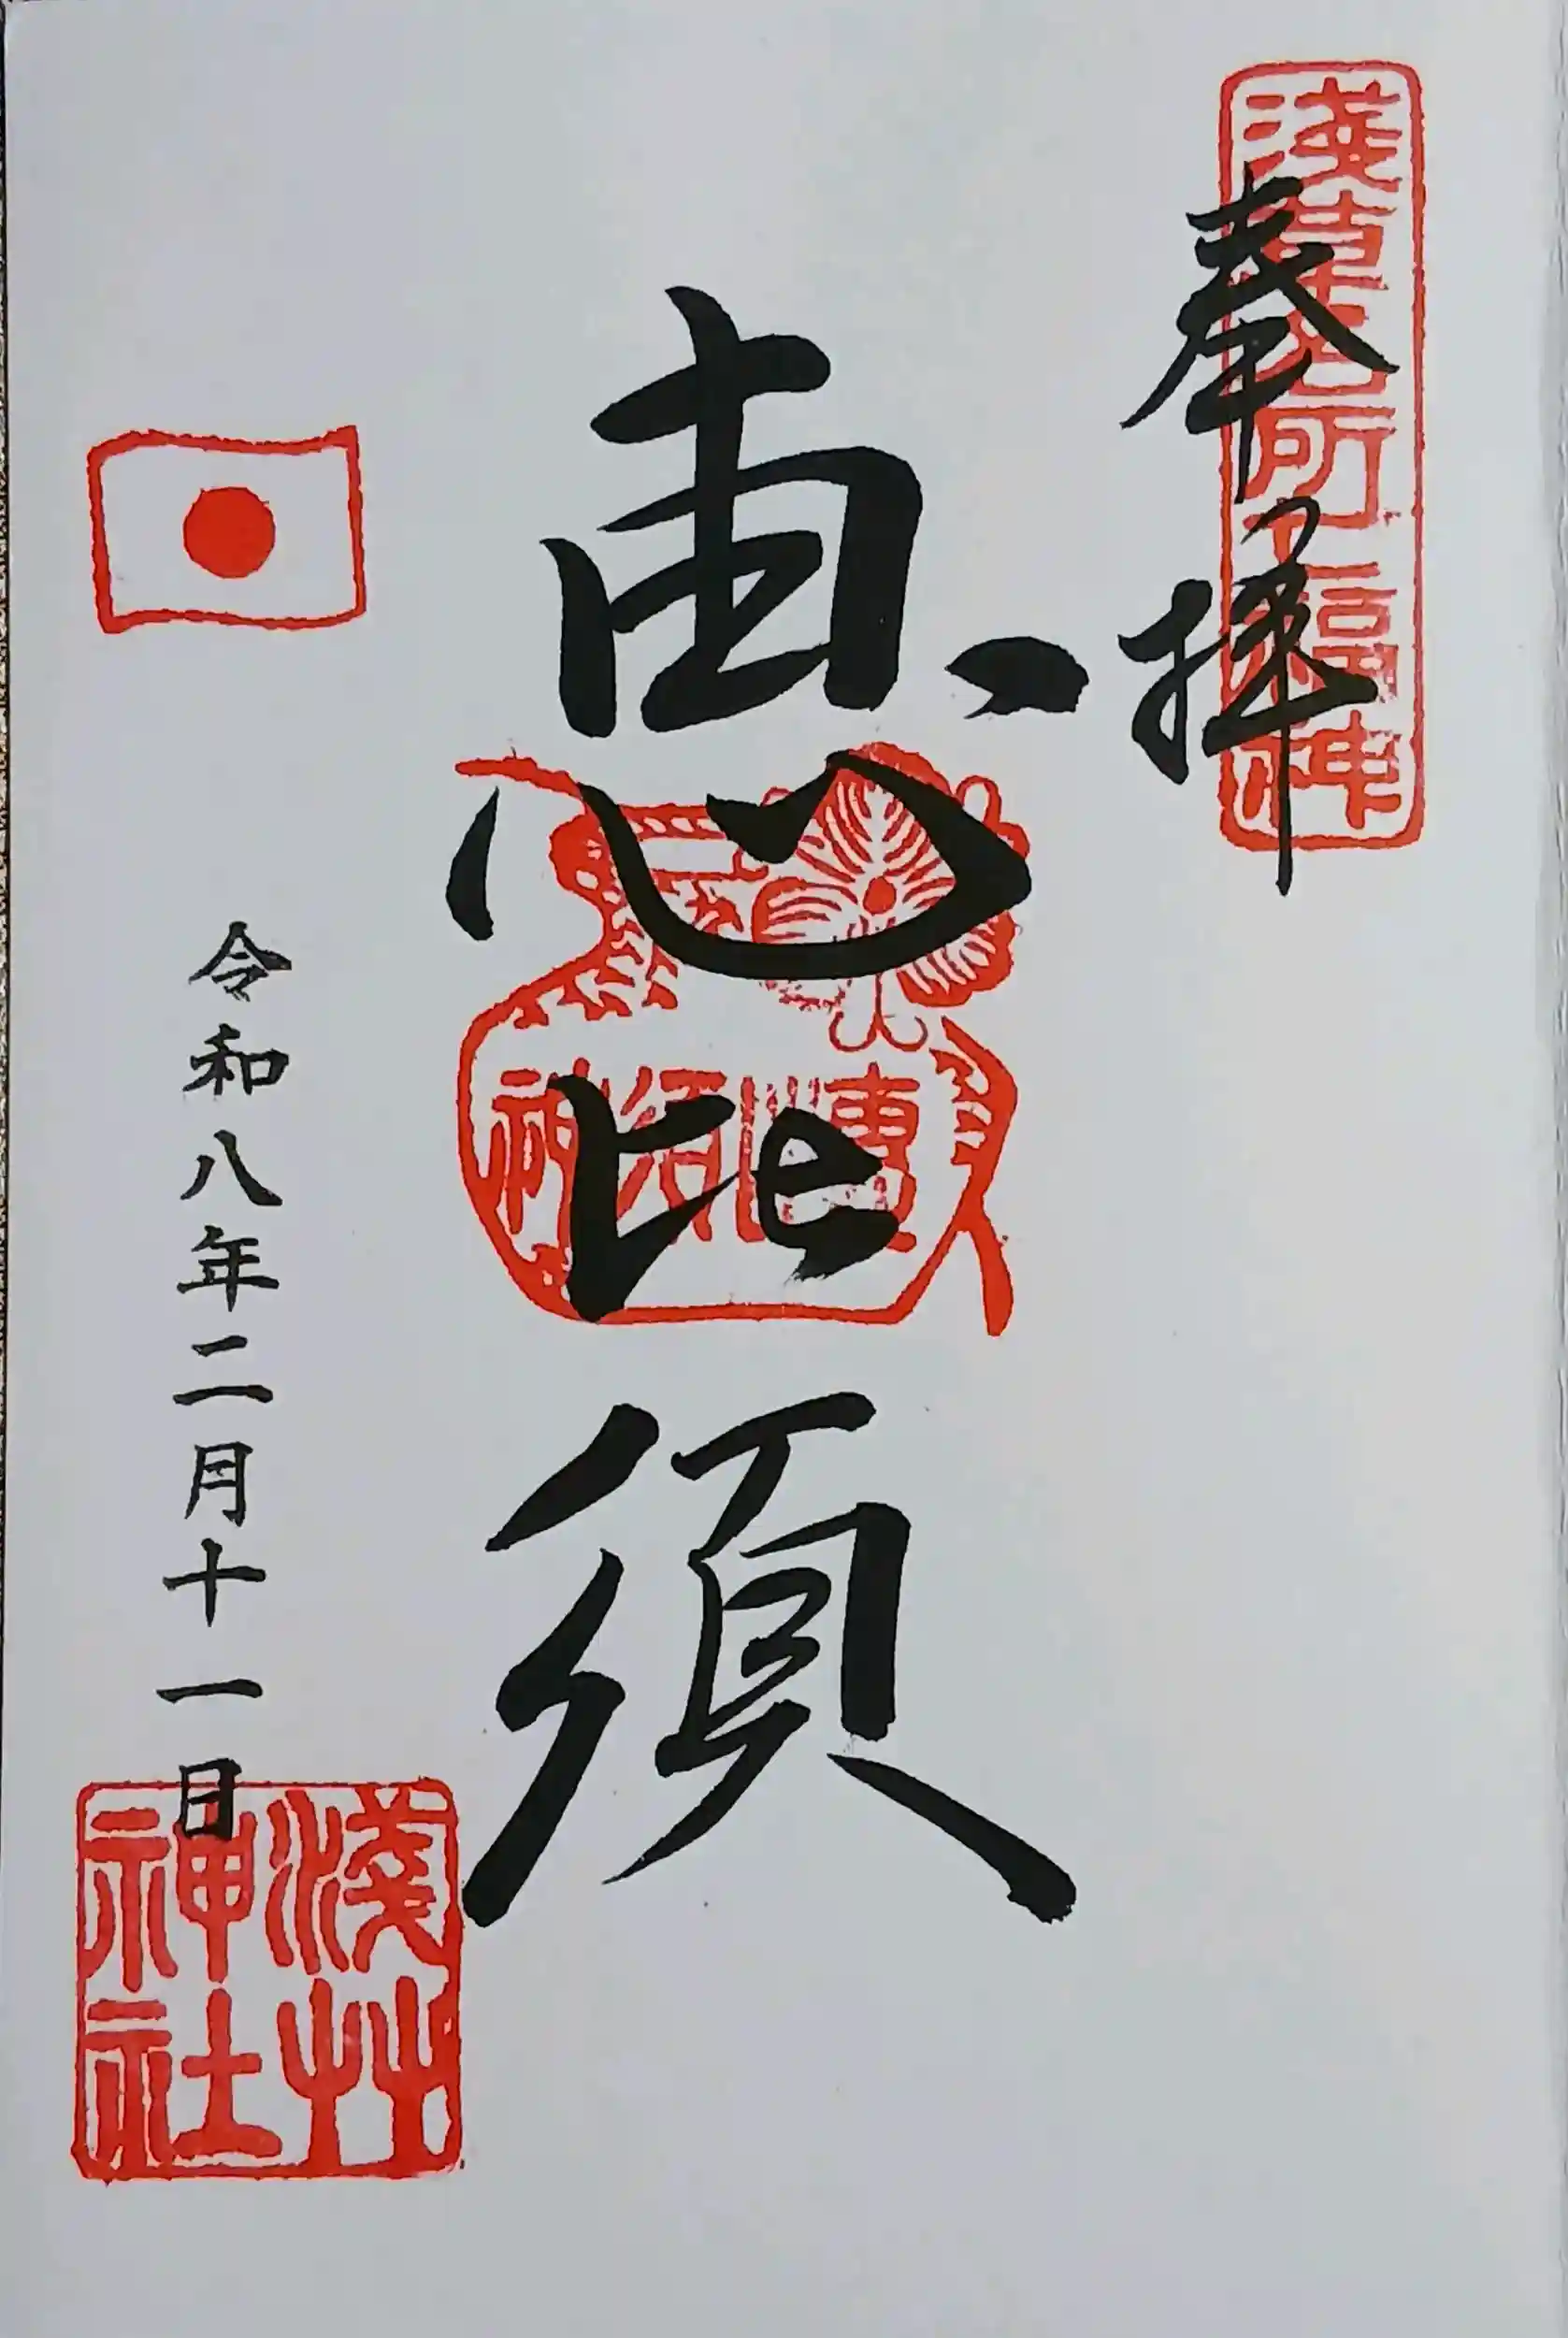 淺草名所七福神
奉拝
恵比須
恵比須神
令和八年二月十一日
淺艸神社